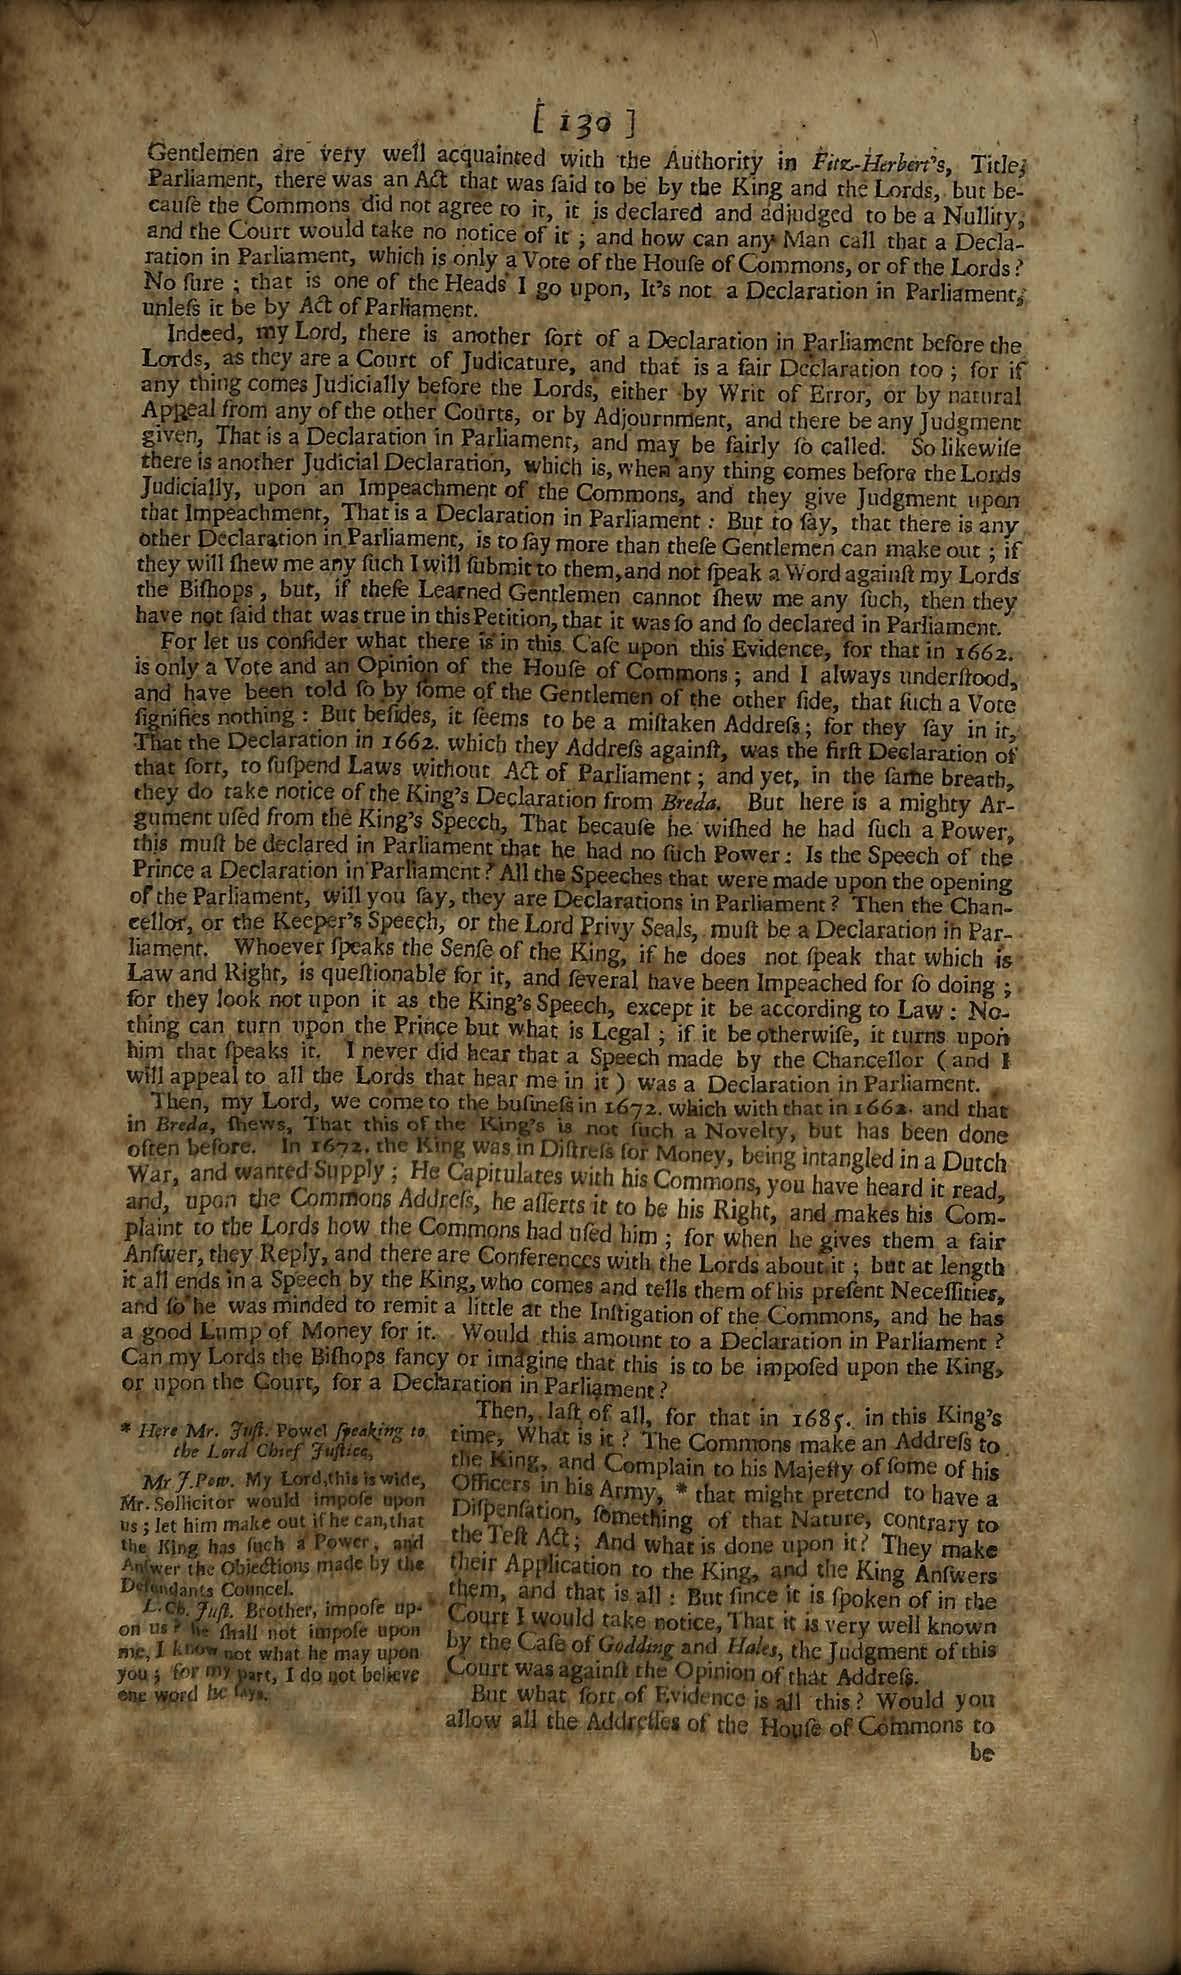 [ 130 ]
Gentlemen are very well acquainted with the Authority in Fitz-Herbert's, Title,
Parliament, there was an Act that was ſaid to be by the King and the Lords, but be-
cauſe the Commons did not agree to it, it is declared and adjudged to be a Nullity,
and the Court would take no notice of it ; and how can any Man call that a Decla-
ration in Parliament, which is only a Vote of the Houſe of Commons, or of the Lords ?
No ſure ; that is one of the Heads I go upon, It's not a Declaration in Parliament,
unleſs it be by Act of Parliament.
Indeed, my Lord, there is another ſort of a Declaration in Parliament before the
Lords, as they are a Court of Judicature, and that is a fair Declaration too ; for if
any thing comes Judicially before the Lords, either by Writ of Error, or by natural
Appeal from any of the other Courts, or by Adjournment, and there be any Judgment
given, That is a Declaration in Parliament, and may be fairly ſo called. So likewiſe
there is another Judicial Declaration, which is, when any thing comes before the Lords
Judicially, upon an Impeachment of the Commons, and they give Judgment upon
that Impeachment, That is a Declaration in Parliament : But to ſay, that there is any
other Declaration in Parliament, is to ſay more than theſe Gentlemen can make out ; if
they will ſhew me any ſuch I will ſubmit to them, and not ſpeak a Word againſt my Lords
the Biſhops, but, if theſe Learned Gentlemen cannot ſhew me any ſuch, then they
have not ſaid that was true in this Petition, that it was ſo and ſo declared in Parliament.
For let us conſider what there is in this Caſe upon this Evidence, for that in 1662.
is only a Vote and an Opinion of the Houſe of Commons ; and I always underſtood,
and have been told ſo by ſome of the Gentlemen of the other ſide, that ſuch a Vote
ſignifies nothing : But beſides, it ſeems to be a miſtaken Addreſs ; for they ſay in it,
That the Declaration in 1662. which they Addreſs againſt, was the firſt Declaration of
that ſort, to ſuſpend Laws without Act of Parliament ; and yet, in the ſame breath,
they do take notice of the King's Declaration from Breda. But here is a mighty Ar-
gument uſed from the King's Speech, That becauſe he wiſhed he had ſuch a Power,
this muſt be declared in Parliament that he had no ſuch Power : Is the Speech of the
Prince a Declaration in Parliament ? All the Speeches that were made upon the opening
of the Parliament, will you ſay, they are Declarations in Parliament ? Then the Chan-
cellor, or the Keeper's Speech, or the Lord Privy Seals, muſt be a Declaration in Par-
liament. Whoever ſpeaks the Senſe of the King, if he does not ſpeak that which is
Law and Right, is queſtionable for it, and ſeveral have been Impeached for ſo doing ;
for they look not upon it as the King's Speech, except it be according to Law : No-
thing can turn upon the Prince but what is Legal ; if it be otherwiſe, it turns upon
him that ſpeaks it. I never did hear that a Speech made by the Chancellor ( and I
will appeal to all the Lords that hear me in it ) was a Declaration in Parliament.
Then, my Lord, we come to the buſineſs in 1672. which with that in 1662. and that
in Breda, ſhews, That this of the King's is not ſuch a Novelty, but has been done
often before. In 1672. the King was in Diſtreſs for Money, being intangled in a Dutch
War, and wanted Supply ; He Capitulates with his Commons, you have heard it read,
and, upon the Commons Addreſs, he aſſerts it to be his Right, and makes his Com-
plaint to the Lords how the Commons had uſed him ; for when he gives them a fair
Anſwer, they Reply, and there are Conferences with the Lords about it ; but at length
it all ends in a Speech by the King, who comes and tells them of his preſent Neceſſities,
and ſo he was minded to remit a little at the Inſtigation of the Commons, and he has
a good Lump of Money for it. Would this amount to a Declaration in Parliament ?
Can my Lords the Biſhops fancy or imagine that this is to be impoſed upon the King,
or upon the Court, for a Declaration in Parliament ?
Then, laſt of all, for that in 1685. in this King's
time, What is it ? The Commons make an Addreſs to
the King, and Complain to his Majeſty of ſome of his
Officers in his Army, * that might pretend to have a
Diſpenſation, ſomething of that Nature, contrary to
the Teſt Act ; And what is done upon it ? They make
their Application to the King, and the King Anſwers
them, and that is all : But ſince it is ſpoken of in the
Court I would take notice, That it is very well known
by the Caſe of Godding and Hales, the Judgment of this
Court was againſt the Opinion of that Addreſs.
But what ſort of Evidence is all this ? Would you
allow all the Addreſſes of the Houſe of Commons to
be
* Here Mr. Juſt. Powel ſpeaking to
the Lord Chief Juſtice,
Mr J. Pow. My Lord, this is wide,
Mr. Sollicitor would impoſe upon
us ; let him make out if he can, that
the King has ſuch a Power, and
Anſwer the Objections made by the
Defendants Councel.
L. Ch. Juſt. Brother, impoſe up-
on us ? he ſhall not impoſe upon
me, I know not what he may upon
you ; for my part, I do not believe
one word he ſays.